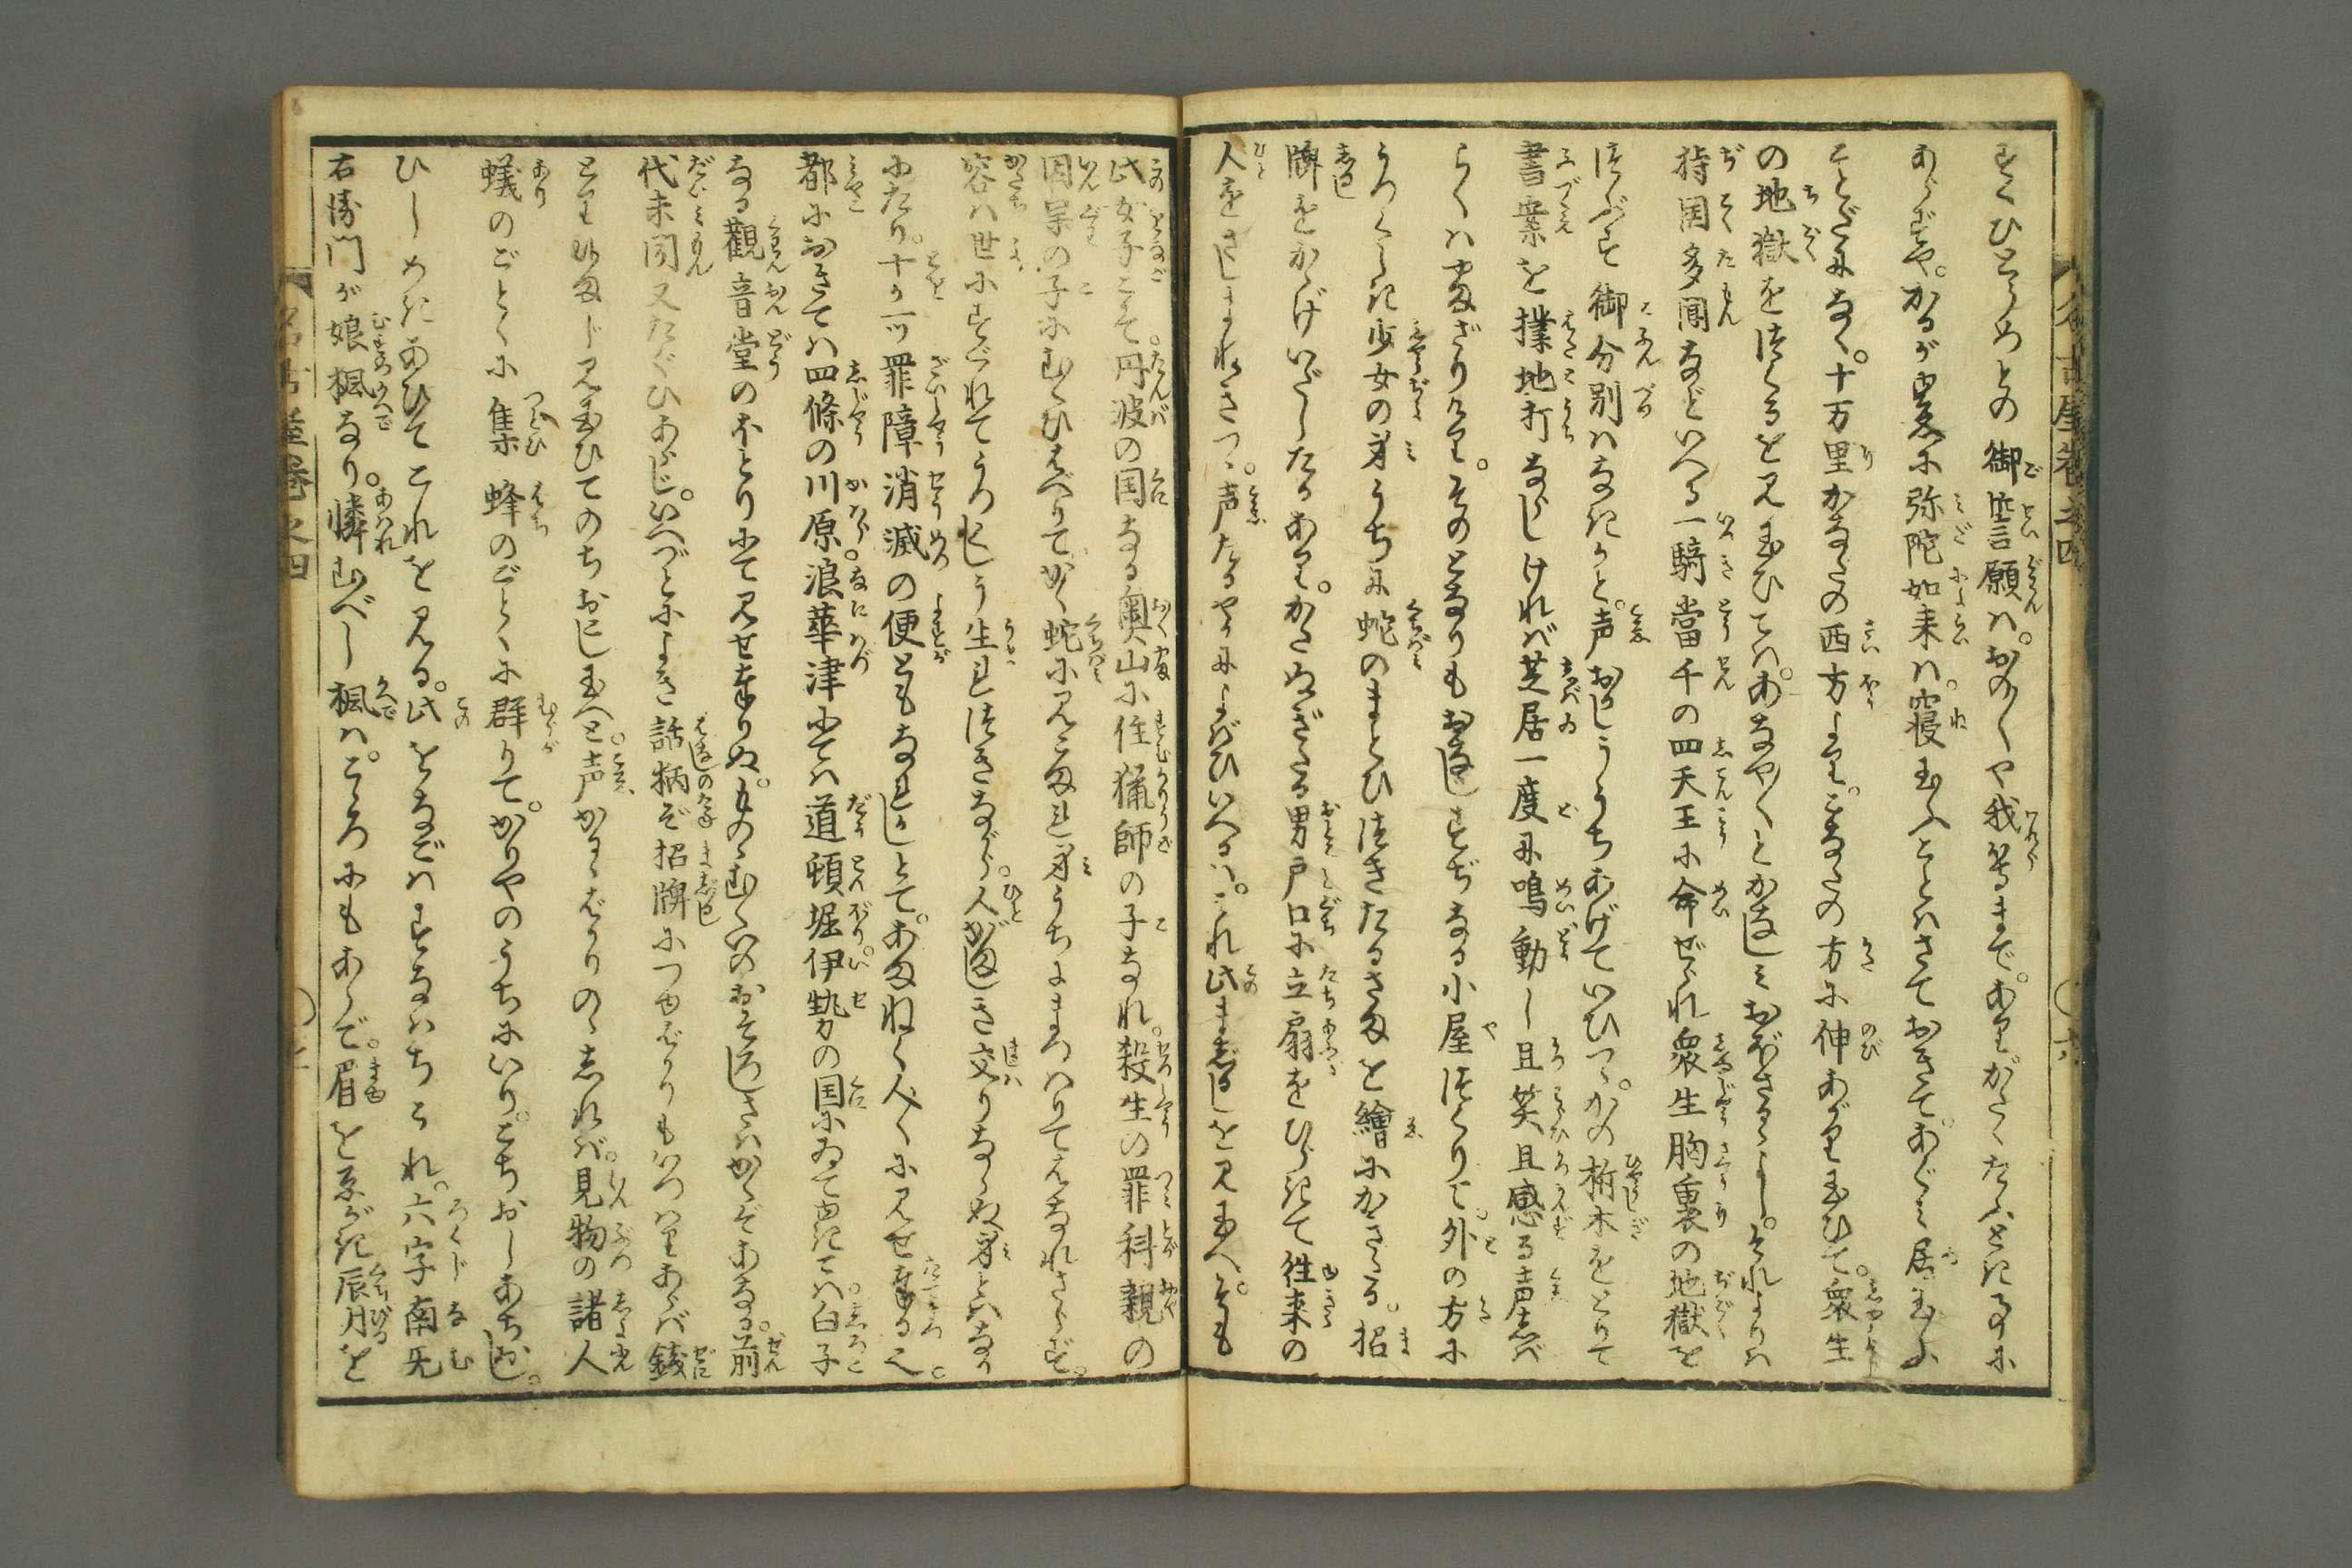 すくひとらめとの御誓願は。おの〳〵や我們まで。ありがたくたふとき事に
あらずや。かるが裏に弥陀如来は。寝玉ふことはさておきて。あぐみ居玉ふ
ことだになく。十万里かなたの西方より。こなたの方に伸あがり玉ひて。衆生
の地獄を作るを見玉ひては。あなや〳〵とかなしみおぼさるゝよし。それよりは
持国多聞などいへる一騎當千の四天王に命ぜられ衆生胸裏の地獄を
つぶす御分別はなきかと。声おかしううちあげていひつゝ。かの柝木をとりて
書案を撲地打ならしければ芝居一度に鳴動し且笑且感る声しば
らくはやまざりけり。そのとなりもおなしすぢなる小屋つくりて。外の方に
うつくしき少女の身うちに蛇のまとひつきたるさまを繪にかきたる。招
牌をかゝげいだしたるあり。かたぬぎたる男戸口に立扇をひらきて往来の
人をさしまねきつゝ。声たかやかによばひいへるは。これ此まねしるしを見玉へ。そも
此女子こそ。丹波の国なる奥山に住猟師の子なれ。殺生の罪科親の
因果の子にむくひはべりてかく蛇に見こまれ身うちにまつはりてはなれさらず。
容は世にすぐれてうつくしう生れつきながら。人がましき交りならぬ身とはなり
にたり。十が一ツ罪障消滅の便ともなれかしとて。あまねく人〳〵に見せ奉る也。
都におきては四條の川原。浪華津にては道頓堀伊勢の国にゐて申きては。白子
なる觀音堂のほとりにて見せ奉りぬ。ものゝむくいのおそろしさはかくぞあなる。前
代未聞又たぐひあらじ。いへづとによき話柄ぞ招牌につゆばかりもいつはりあらば錢
とり玽まじ見玉ひてのちおこし玉へと。声かるゝばかりのゝしれば。見物の諸人
蟻のごとくに集蜂のごとくに群りて。かりやのうちにいり。こちおしあちおし。
ひしめきあひてこれを見る。此をなごはすなはちこれ。六字南无
右衛門が娘楓なり。憐むべし楓は。こゝろにもあらで。眉を画がき唇丹を